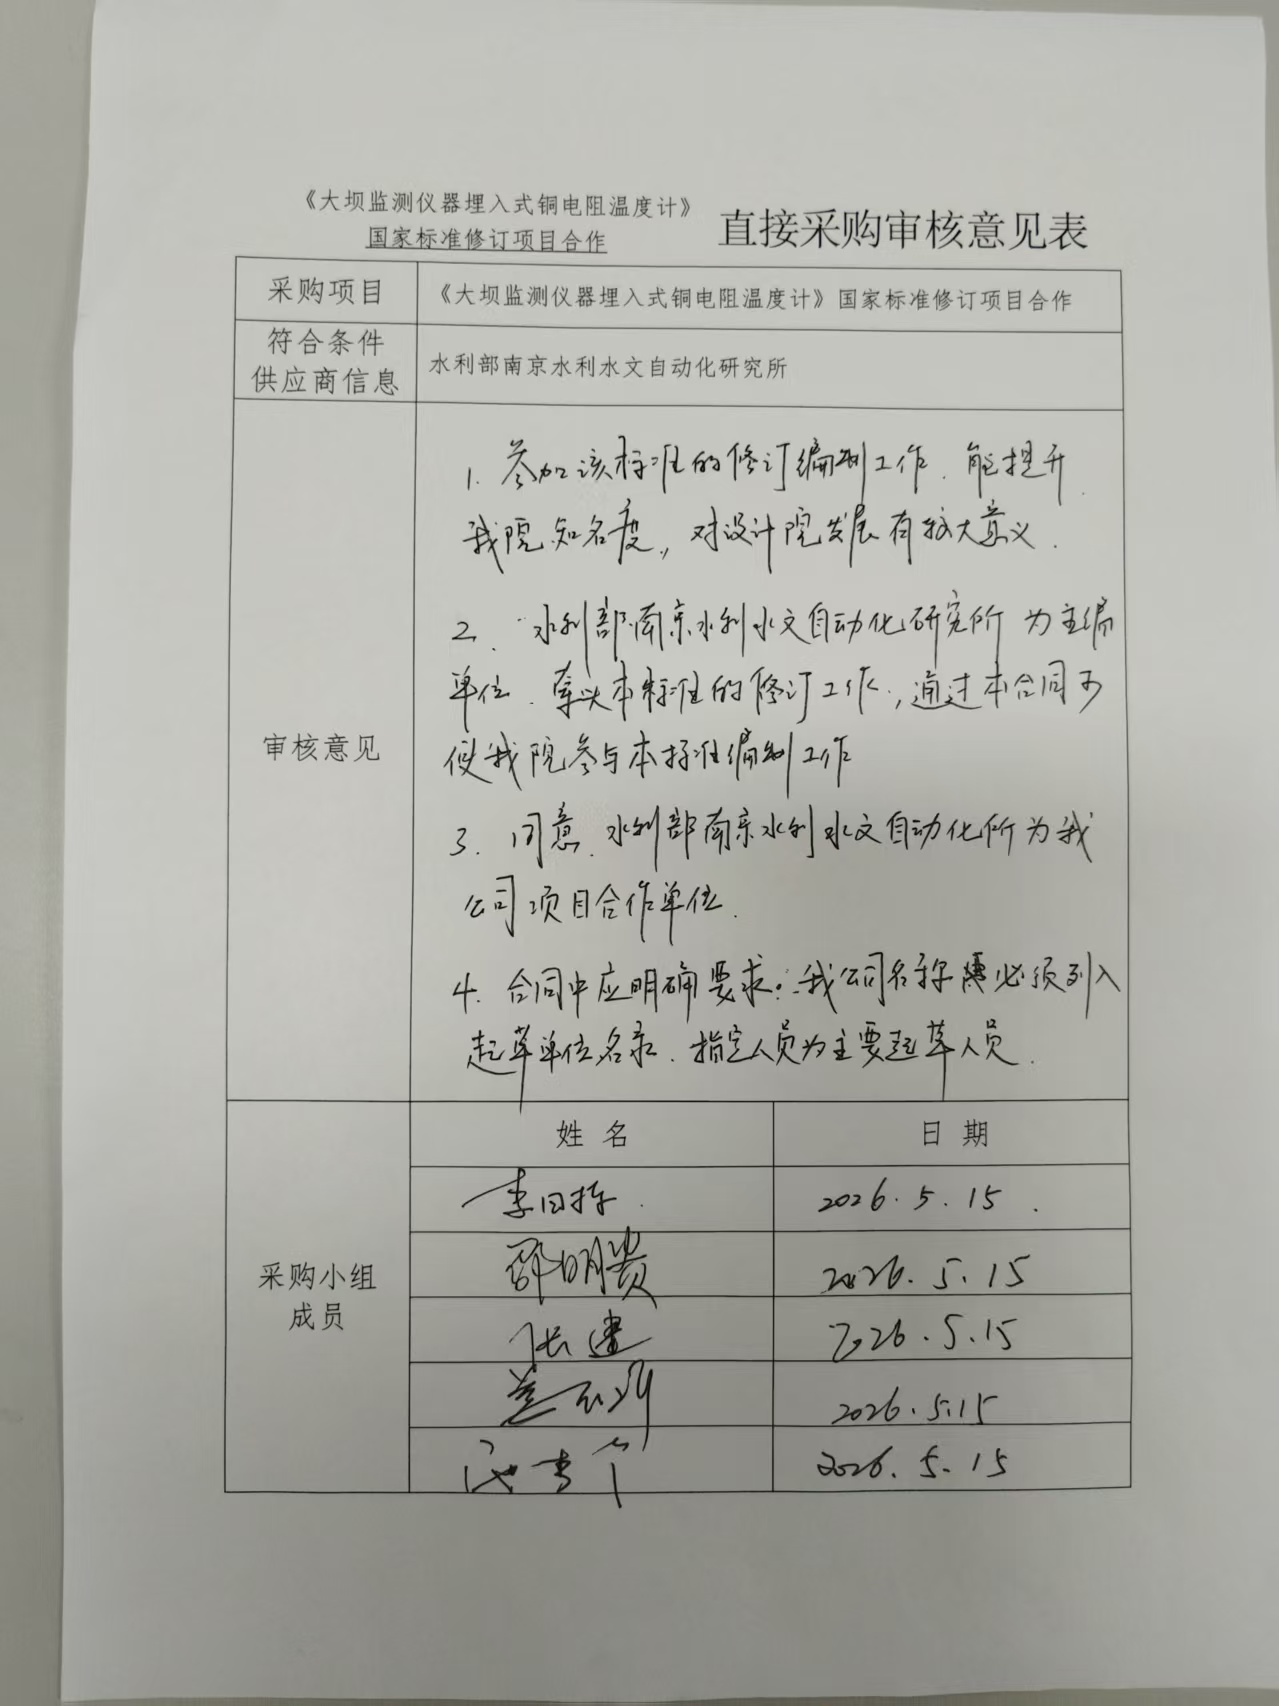 《大坝监测仪器埋入式铜电阻温度计》
国家标准修订项目合作
直接采购审核意见表
采购项目
《大坝监测仪器埋入式铜电阻温度计》国家标准修订项目合作
符合条件
供应商信息
水利部南京水利水文自动化研究所
审核意见
1. 参加该标准的修订编制工作、能提升
我院知名度，对设计院发展有较大意义.
2. 水利部南京水利水文自动化研究所为主编
单位. 牵头本标准的修订工作，通过本合同可
使我院参与本标准编制工作
3. 同意水利部南京水利水文自动化所为我
公司项目合作单位.
4. 合同中应明确要求：我公司名称必须列入
起草单位名录. 指定人员为主要起草人员.
采购小组
成员
姓 名
日 期
2026.5.15.
邵明贵
2026.5.15
张建
2026.5.15
2026.5.15
2026.5.15